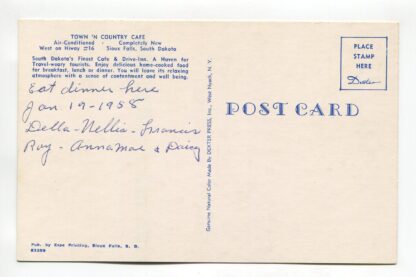 TOWN 'N COUNTRY CAFE
Air-Conditioned - Completely New
West on Hiway #16 Sioux Falls, South Dakota
South Dakota's Finest Cafe & Drive-Inn. A Haven for
Travel-weary tourists. Enjoy delicious home-cooked food
for breakfast, lunch or dinner. You will leave its relaxing
atmosphere with a sense of contentment and well being.
Eat dinner here
Jan 19-1958
Della-Nellie-Francis
Roy-Annamae & Daisy
Pub. by Expo Printing, Sioux Falls, S. D.
Genuine Natural Color Made By DEXTER PRESS, Inc., West Nyack, N. Y.
POST CARD
PLACE
STAMP
HERE
Dexter